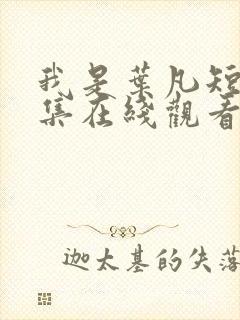 我是葉凡短
集在綫觀看
迦太基的失落